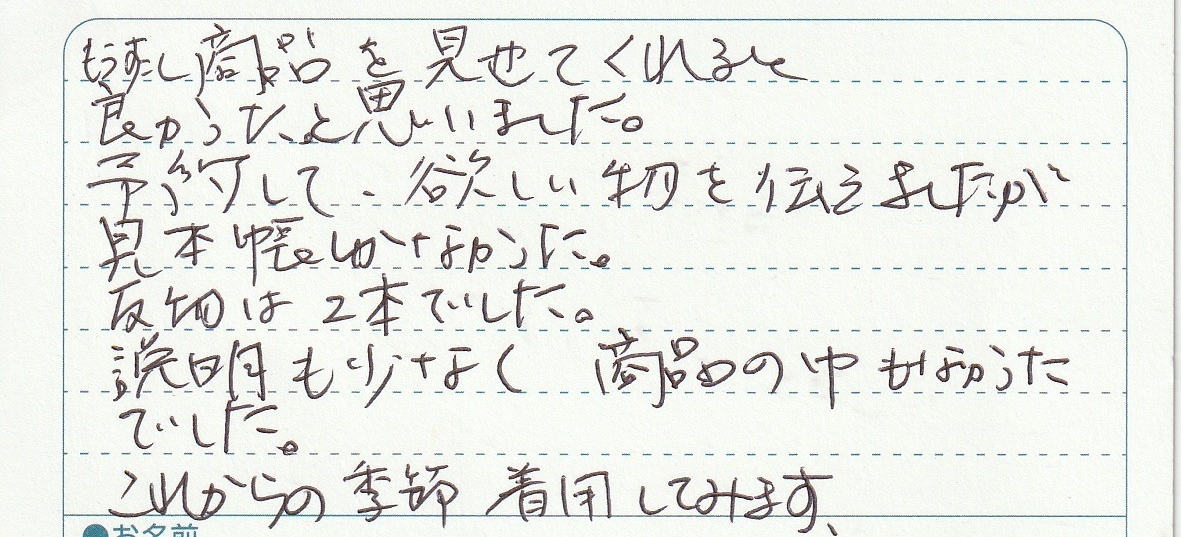 もうすこし商品を見せてくれると
良かったと思いました。
予約して、欲しい物を伝えましたが
見本帳しかなかった。
反物は2本でした。
説明も少なく 商品の中も
でした。
これからの季節 着用してみます、
●お名前